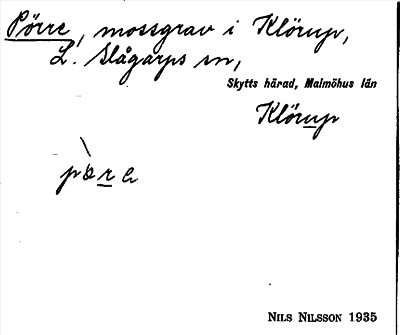 Pörre, mossgrav i Klörup,
L. Slågarps sn,
Skytts härad, Malmöhus län
Klörup
NILS NILSSON 1935